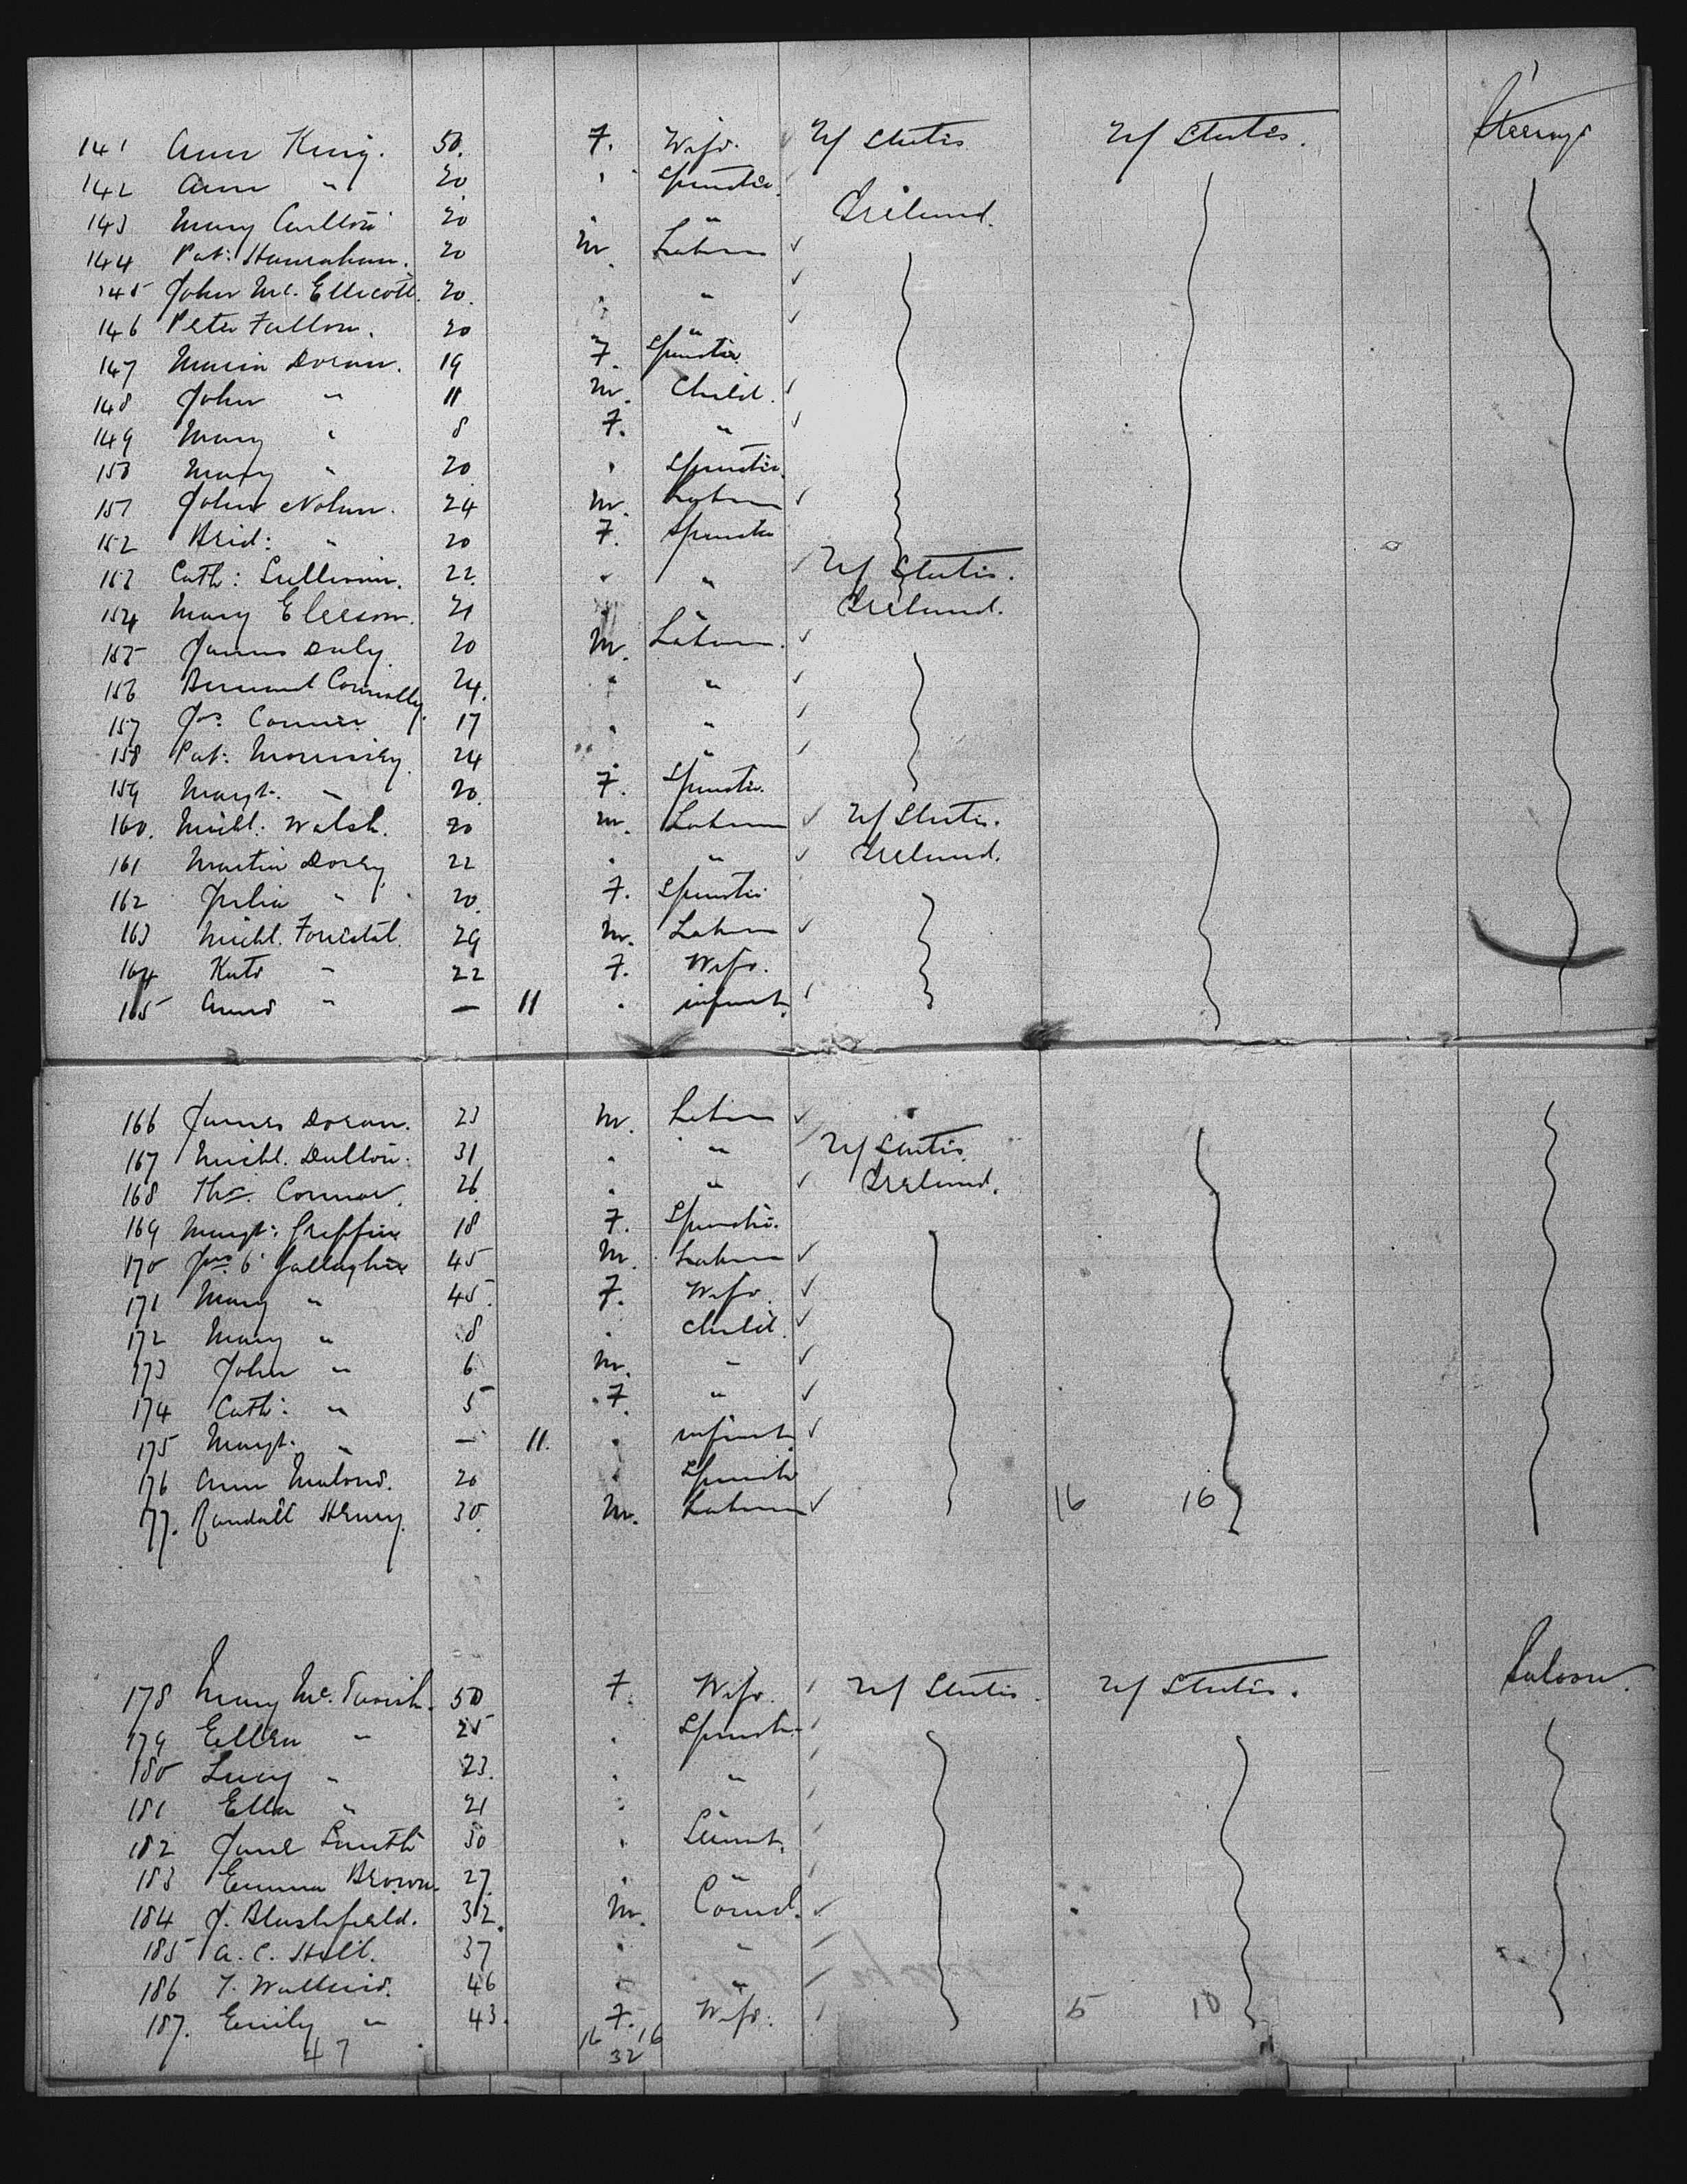 141 Ann King. 50. F. Wife. U/ States U/ States. Steerage
142 Ann " 20 " Spinster
143 Mary Carlton 20 " " Ireland.
144 Pat: Hanrahan. 20 M. Labour
145 John Mc. Ellicott. 20. " "
146 Peter Fallon. 20 " "
147 Maria Doran. 19 F. Spinster
148 John " 11 M. Child.
149 Mary " 8 F. "
150 Mary " 20 " Spinster
151 John Nolan. 24 M. Labour
152 Brid: " 20 F. Spinster
153 Cath: Sullivan. 22. " " U/ States.
154 Mary Gleeson. 21 " Ireland.
155 James Daly. 20 M. Labour.
156 Bernard Connolly. 24. " "
157 Jas. Connor. 17 " "
158 Pat: Morrissey. 24 " "
159 Margt. " 20. F. Spinster.
160. Michl: Walsh. 20 M. Labour U/ States.
161 Martin Dorey 22 " " Ireland.
162 Julia " 20. F. Spinster
163 Michl. Forristal. 29 M. Labour
164 Kate " 22 F. Wife.
165 Annie " — 11 " infant.
166 James Doran. 23 M. Labour
167 Michl. Dalton. 31 " " U/ States
168 Ths. Connor. 26 " " Ireland.
169 Margt: Griffin 18 F. Spinster.
170 Jas. O'Gallagher 45 M. Labour
171 Mary " 45. F. Wife.
172 Mary " 8 " Child.
173 John " 6 M. "
174 Cath: " 5 F. "
175 Margt. " — 11. " infant
176 Ann Malone. 20 " Spinster
177. Randall Henry. 30. M. Labour 16 16
178 Mary Mc. Tavish. 50 F. Wife. U/ States. U/ States. Saloon.
179 Ellen " 25 " Spinster
180 Lucy " 23. " "
181 Ella " " 21 " "
182 Jane Smith 30 " Servnt.
183 Emma Brown. 27. " "
184 J. Blushfield. 32. M. Comml.
185 A. C. Hall. 37 " "
186 T. Wallis. 46 " "
187. Emily " 43. F. Wife. 5 10
47 16 16
32